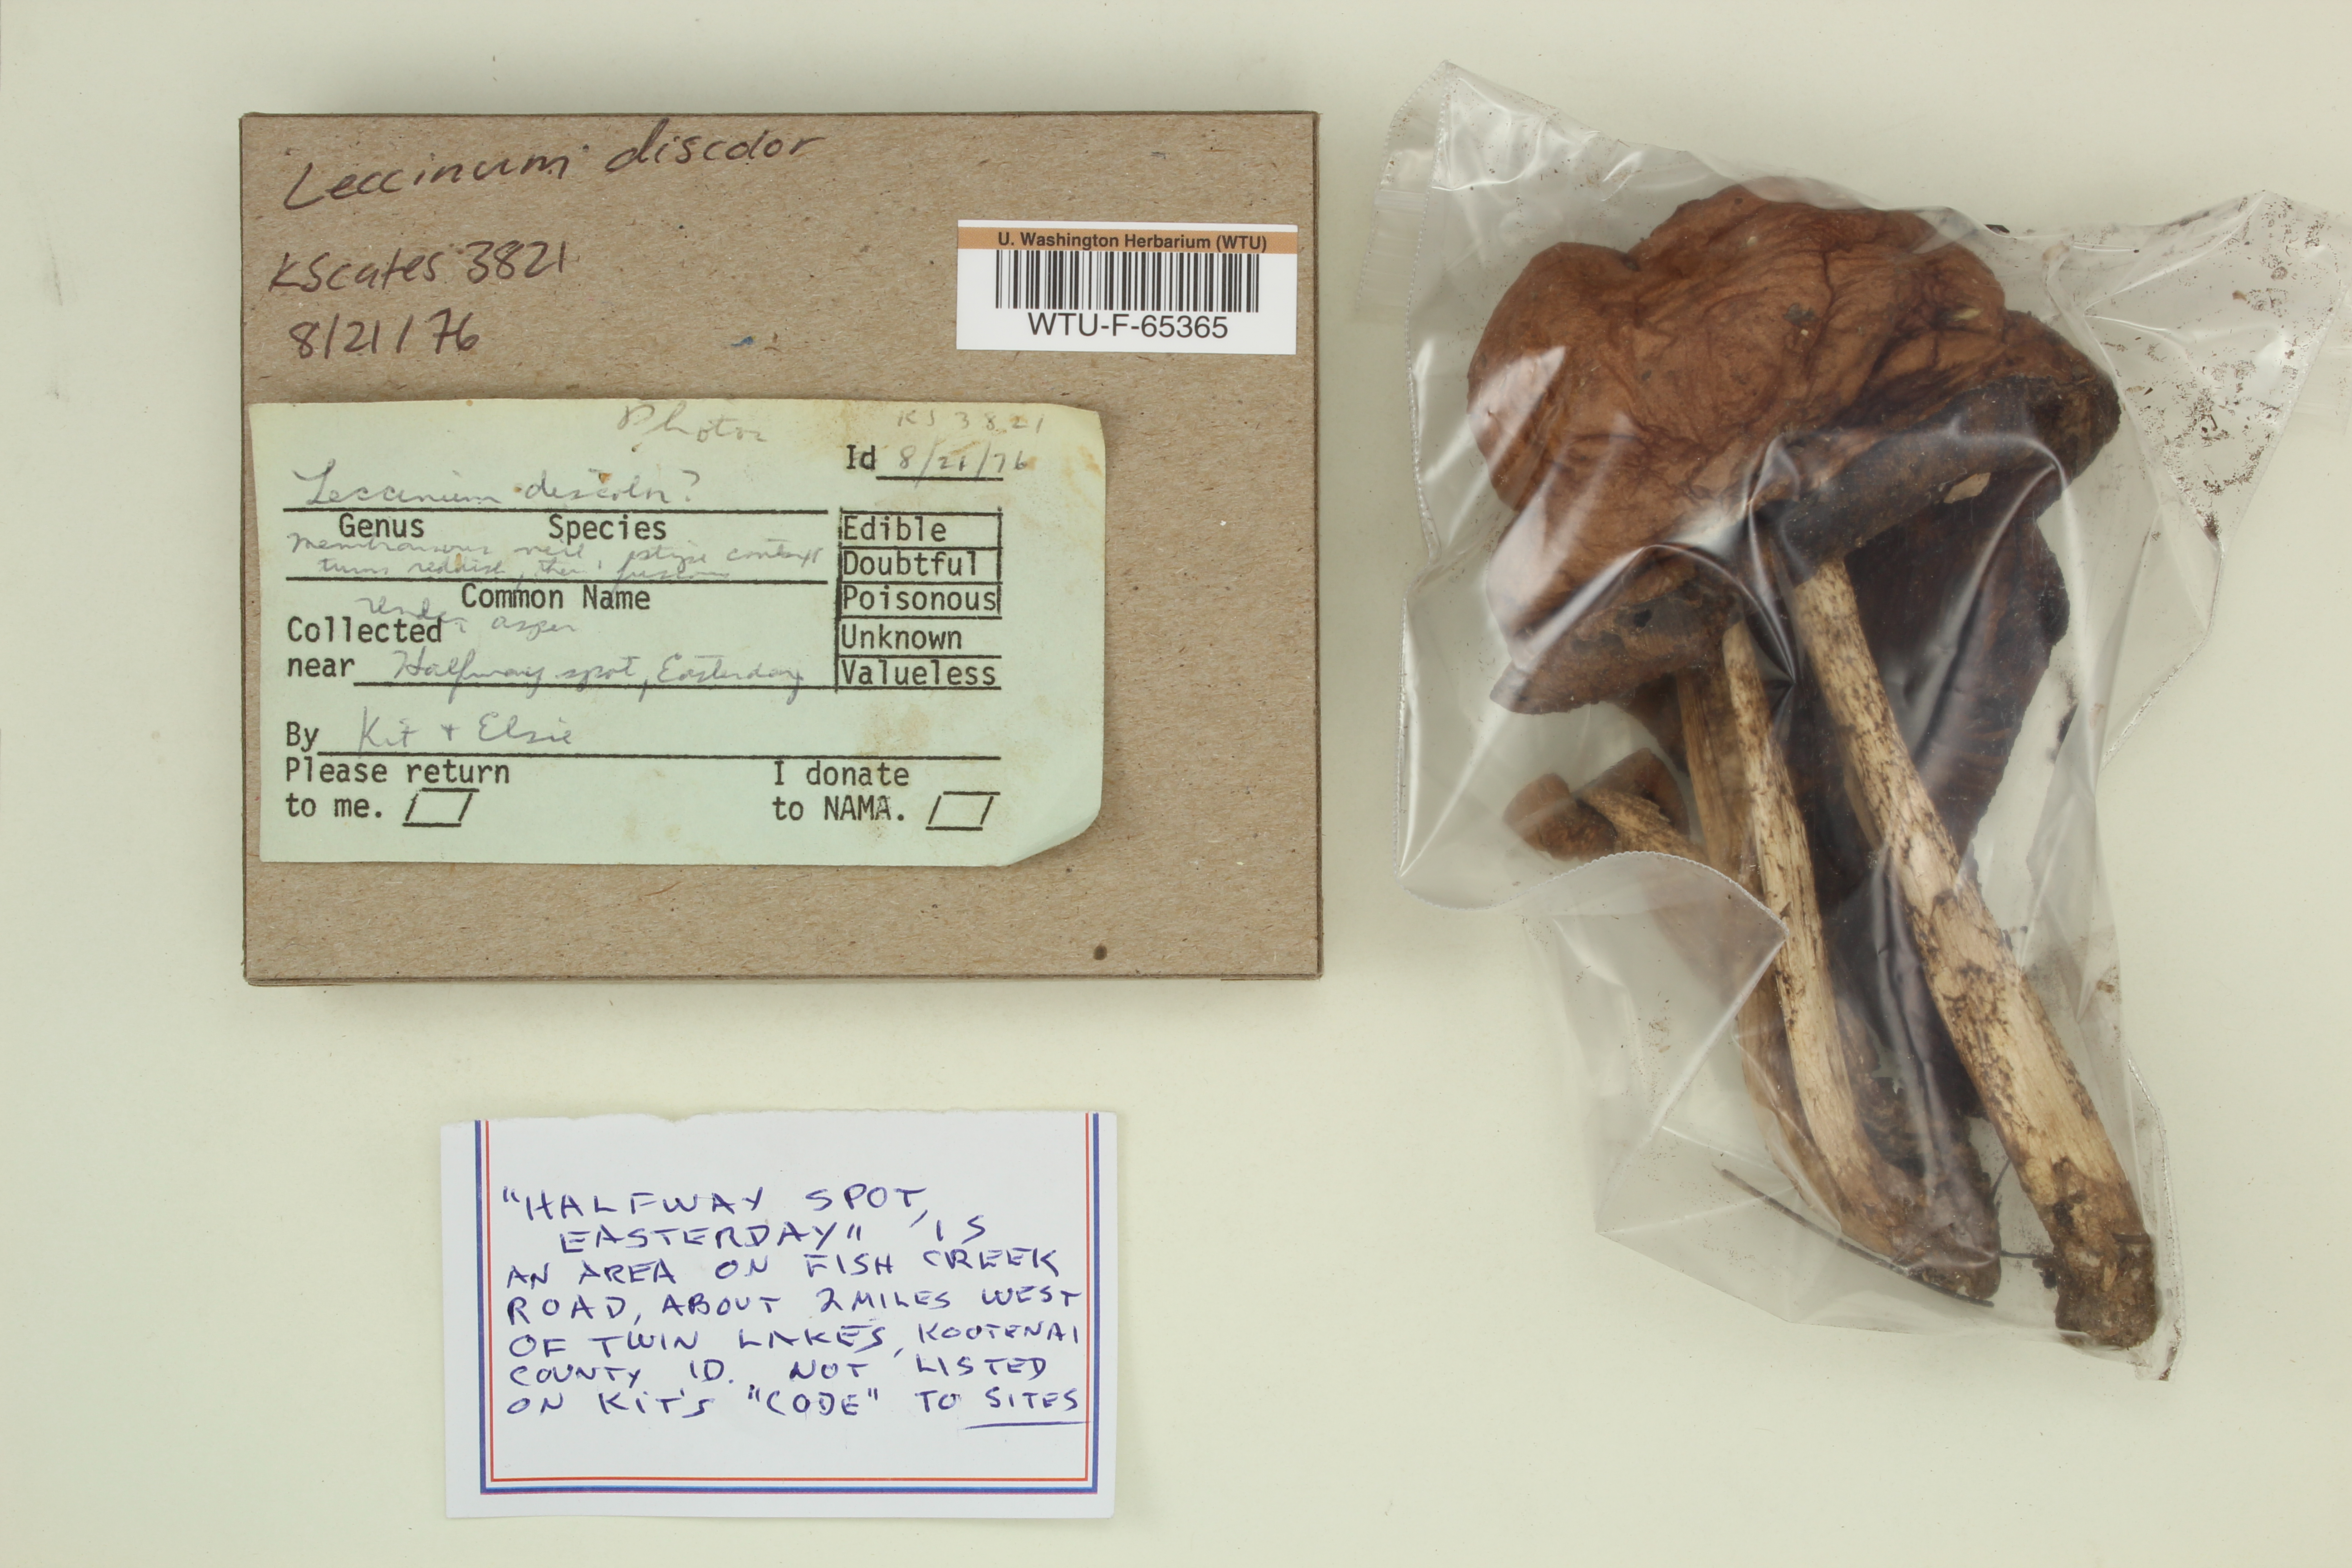 Leccinum discolor
KScates 3821
8/21/76
U. Washington Herbarium (WTU)
WTU-F-65365
Photos
KS 3821
Id 8/21/76
Leccinum discolor?
Genus Species
membranous veil, stipe context
turns reddish, then fuscous
Common Name
Under aspen
Collected
near Halfway spot, Easterday
By Kit + Elsie
Please return
to me.
I donate
to NAMA.
Edible
Doubtful
Poisonous
Unknown
Valueless
"HALFWAY SPOT,
EASTERDAY" IS
AN AREA ON FISH CREEK
ROAD, ABOUT 2 MILES WEST
OF TWIN LAKES, KOOTENAI
COUNTY ID. NOT LISTED
ON KIT'S "CODE" TO SITES